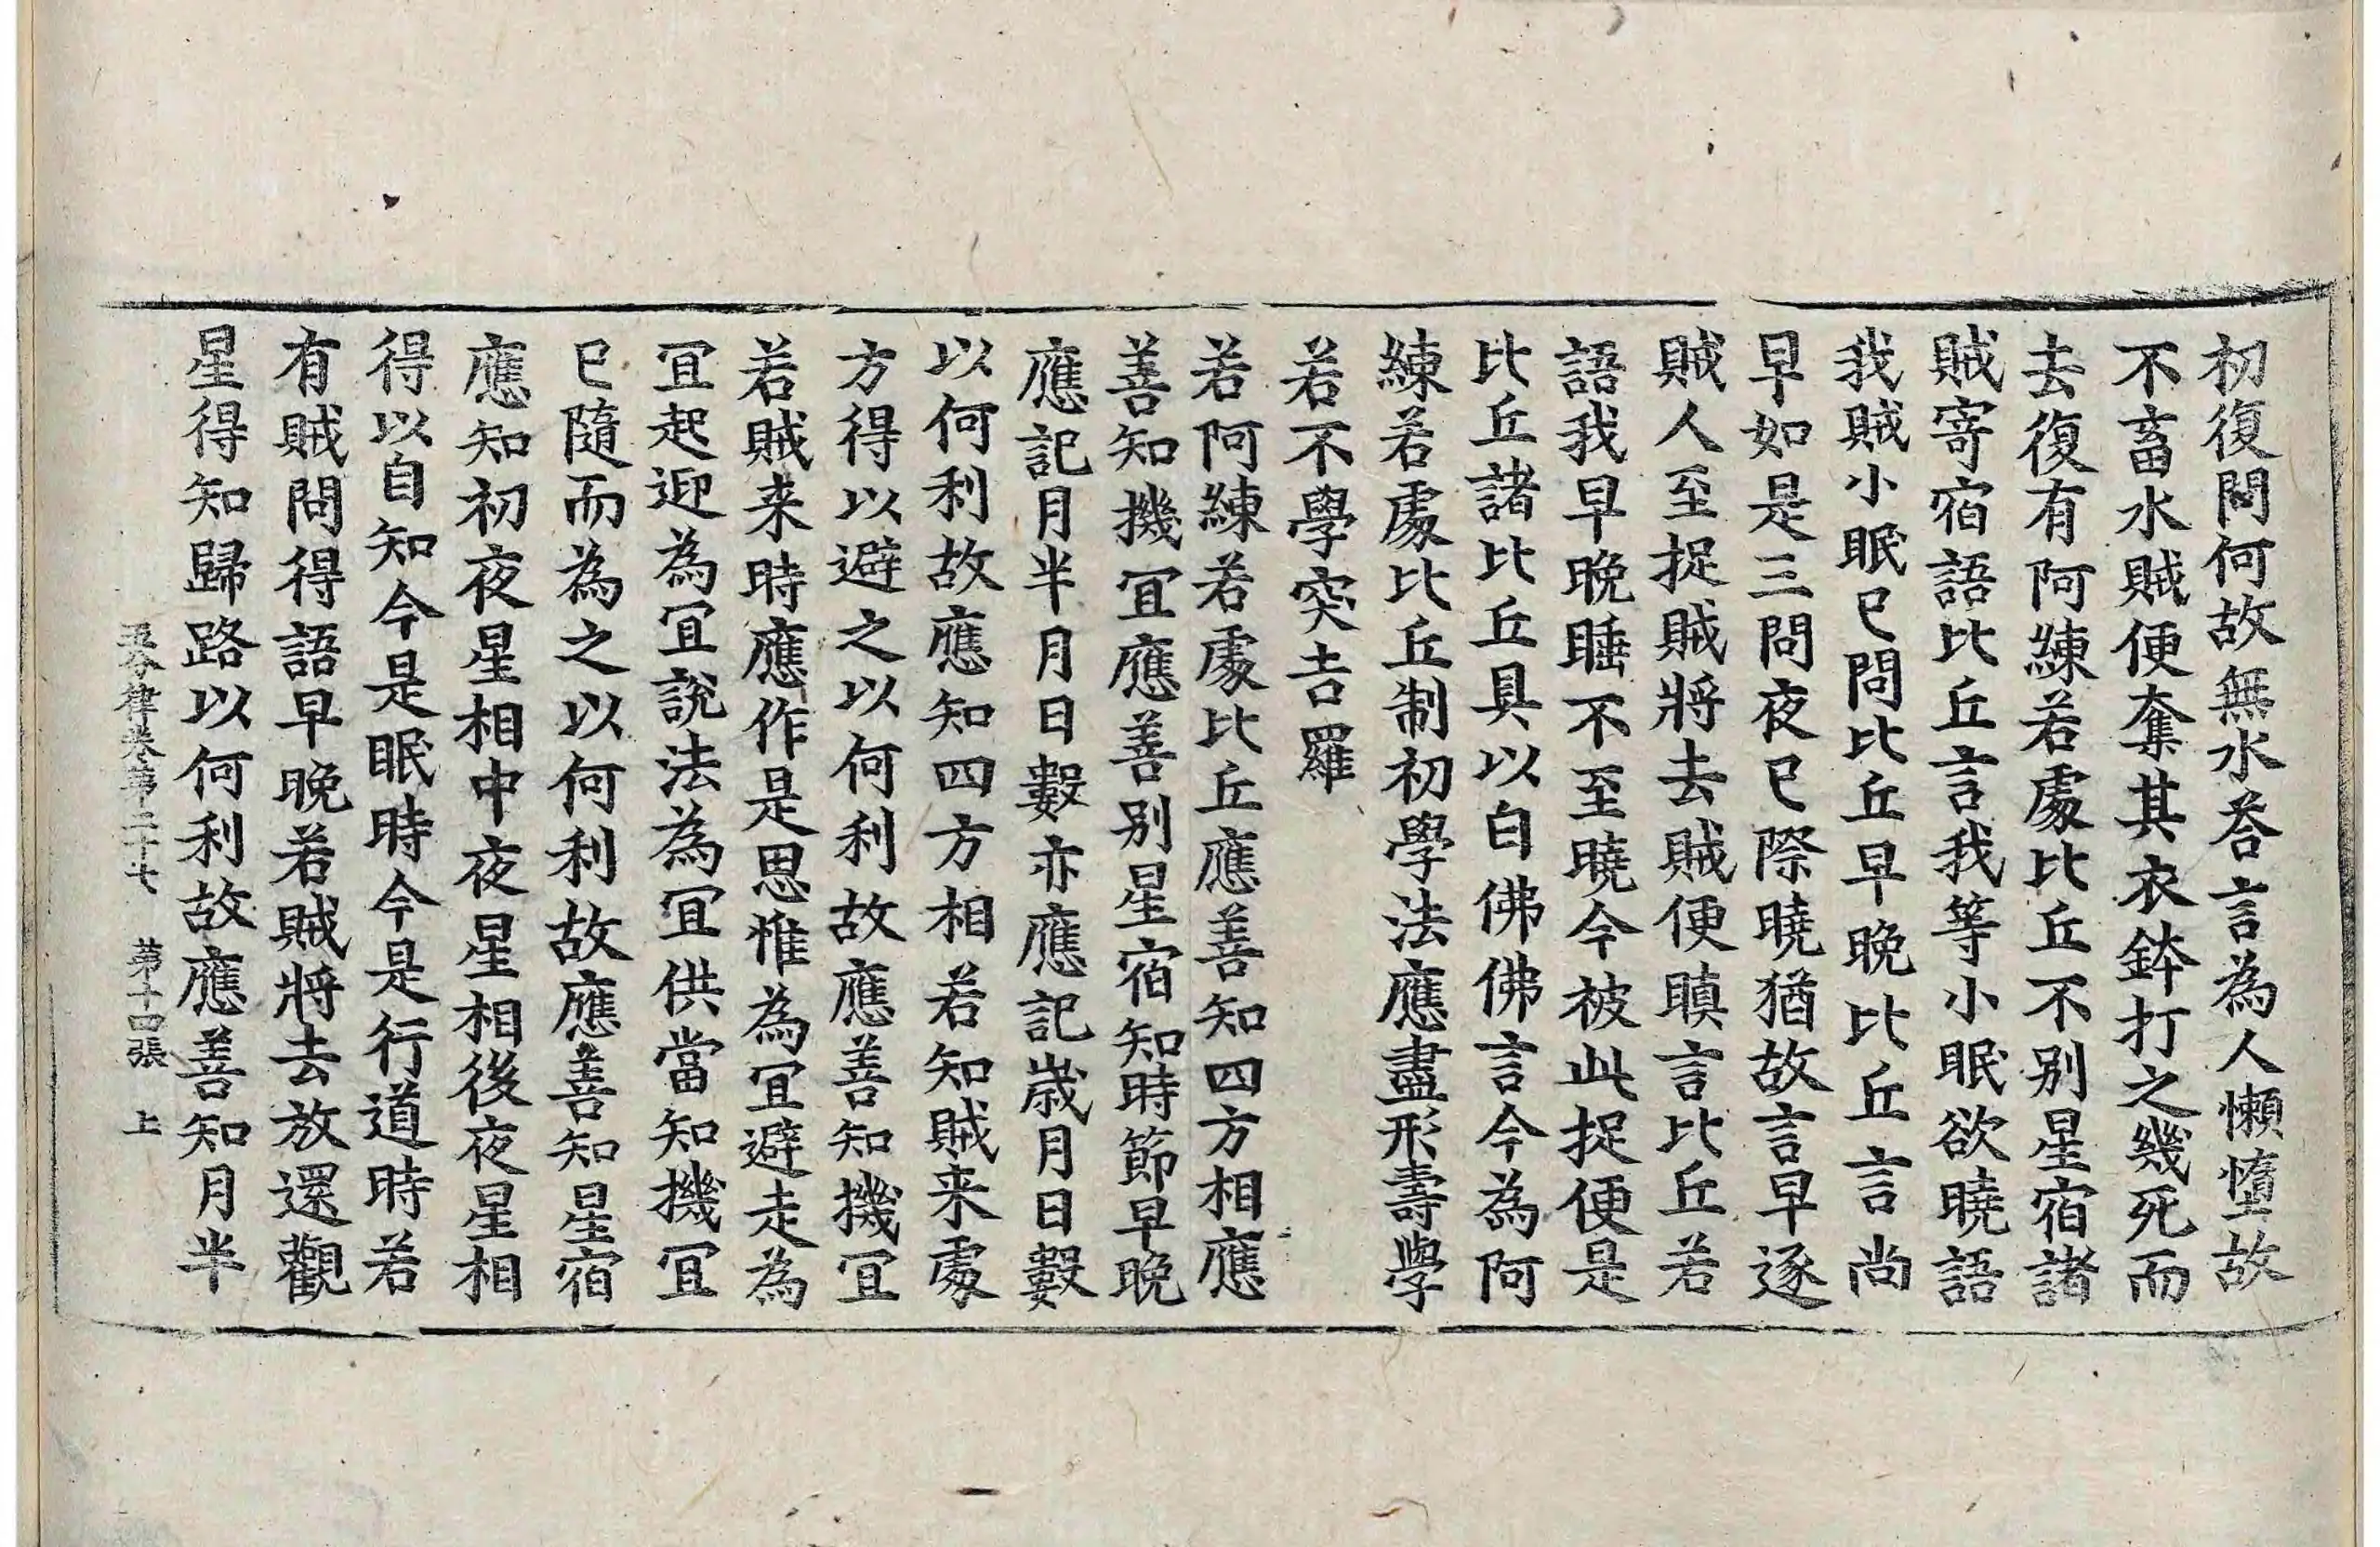 初復問何故無水荅言為人懶墮故
不畜水賊便奪其衣鉢打之幾死而
去復有阿練若處比丘不别星宿諸
賊寄宿語比丘言我等小眠欲曉語
我賊小眠已問比丘早晚比丘言尚
早如是三問夜已際曉猶故言早逐
賊人至捉賊將去賊便瞋言比丘若
語我早晚睡不至曉今被此捉便是
比丘諸比丘具以白佛佛言今為阿
練若處比丘制初學法應盡形壽學
若不學突吉羅
若阿練若處比丘應善知四方相應
善知機冝應善别星宿知時節早晚
應記月半月日數亦應記歲月日數
以何利故應知四方相若知賊来處
方得以避之以何利故應善知機冝
若賊来時應作是思惟為冝避走為
冝起迎為冝說法為冝供當知機冝
已隨而為之以何利故應善知星宿
應知初夜星相中夜星相後夜星相
得以自知今是眠時今是行道時若
有賊問得語早晚若賊將去放還觀
星得知歸路以何利故應善知月半
五分律卷第二十七 第十四張 上